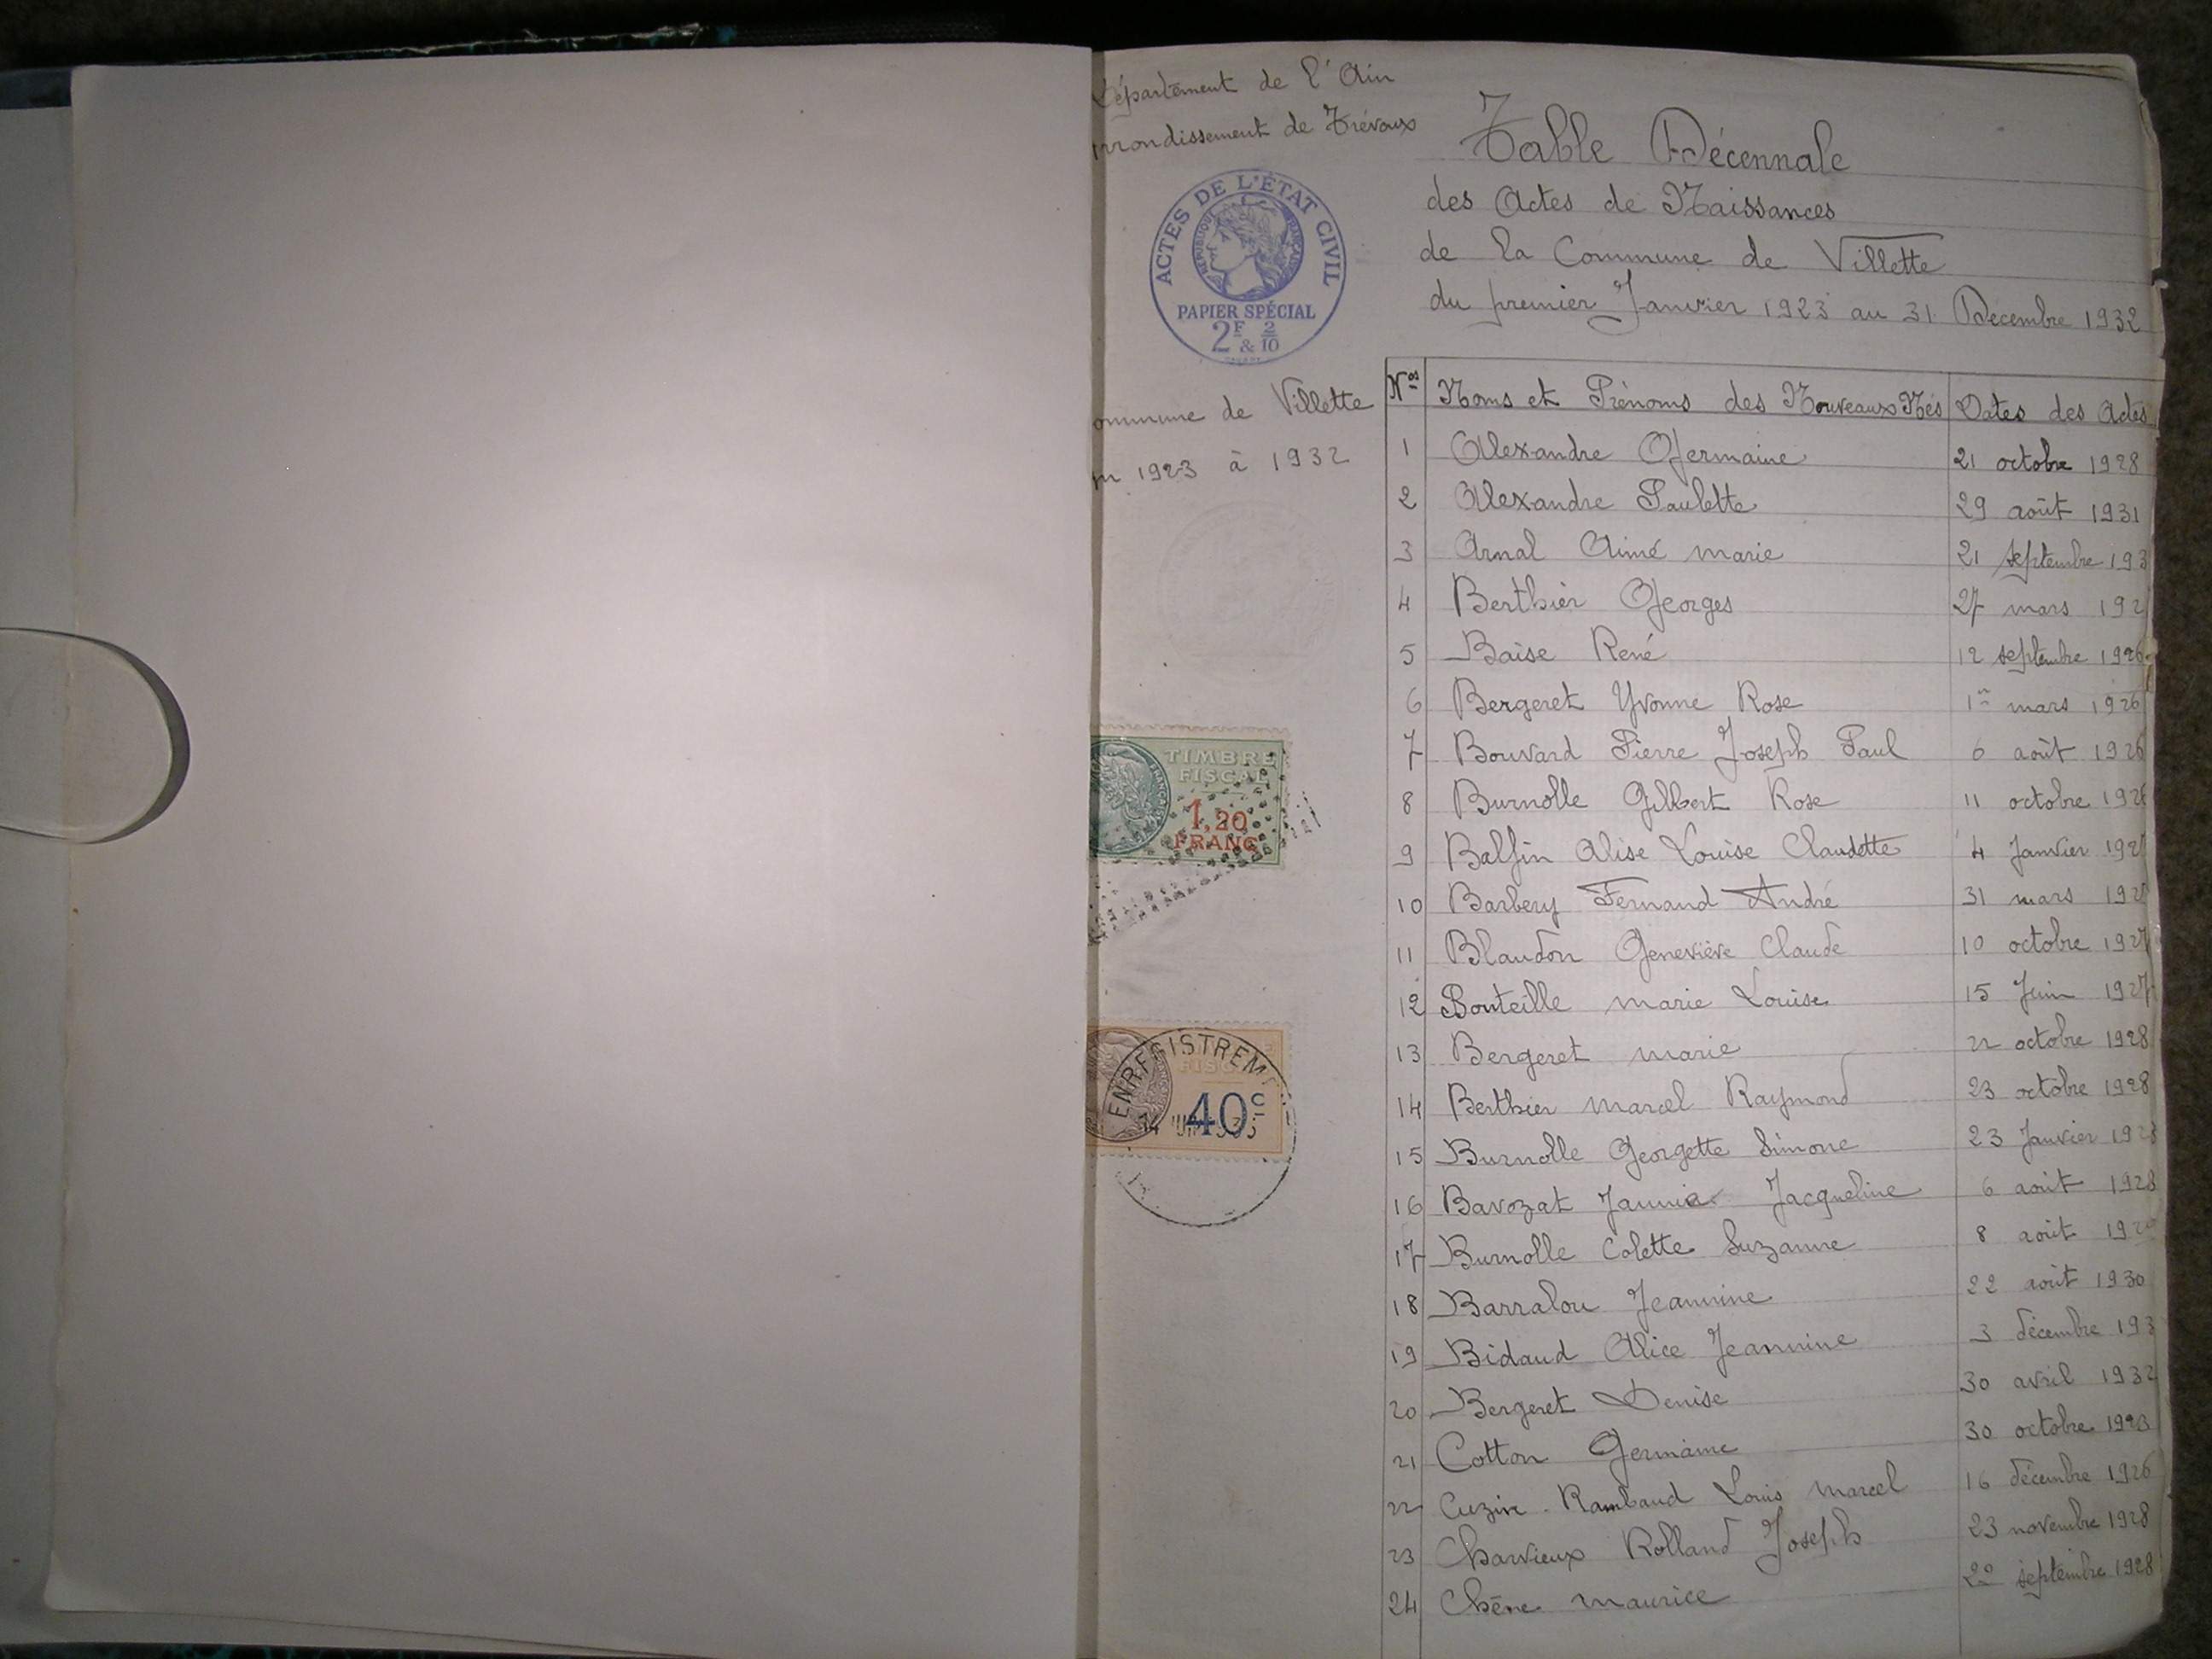 Département de l'Ain
rrondissement de Trévoux
ACTES DE L'ÉTAT CIVIL
RÉPUBLIQUE FRANÇAISE
PAPIER SPÉCIAL
2F & 2/10
ommune de Villette
1923 à 1932
TIMBRE
FISCAL
1,20
FRANC
ENREGISTREM
FISC
40c
Table Décennale
des Actes de Naissances
de la Commune de Villette
du premier Janvier 1923 au 31 Décembre 1932
Nos Noms et Prénoms des Nouveaux Nés Dates des Actes
1 Alexandre Germaine 21 octobre 1928
2 Alexandre Paulette 29 août 1931
3 Arnal Aimé marie 21 septembre 193
4 Berthier Georges 27 mars 192
5 Baise René 12 septembre 1926
6 Bergeret Yvonne Rose 1er mars 1926
7 Bouvard Pierre Joseph Paul 6 août 1926
8 Burnolle Gilbert Rose 11 octobre 1926
9 Balfin Alise Louise Claudette 4 Janvier 192
10 Barbery Fernand André 31 mars 192
11 Blaudon Geneviève Claude 10 octobre 1927
12 Bouteille marie Louise 15 Juin 1927
13 Bergeret marie 22 octobre 1928
14 Berthier marcel Raymond 23 octobre 1928
15 Burnolle Georgette Simone 23 Janvier 1928
16 Bavozat Jacqueline 6 août 1928
17 Burnolle Colette Suzanne 8 août 192
18 Barralou Jeannine 22 août 1930
19 Bidaud Alice Jeannine 3 décembre 193
20 Bergeret Denise 30 avril 1932
21 Cotton Germaine 30 octobre 1923
22 Cuzin - Rambaud Louis marcel 16 décembre 1926
23 Charvieux Rolland Joseph 23 novembre 1928
24 Chêne maurice septembre 1928